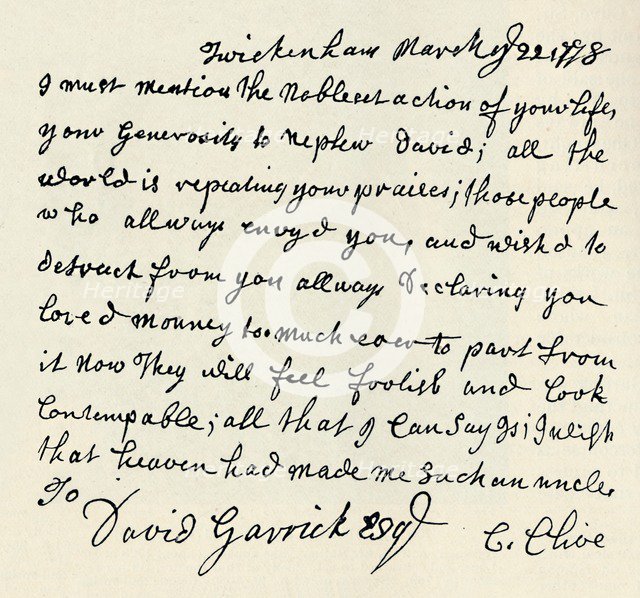 Twickenham March ye 22 1778
I must mention the Nobleset action of your life,
your Generosity to Nephew David; all the
world is repeating your praises; those people
who allways envyd you, and wishd to
detract from you allways Declaring you
loved Monney to much ever to part from
it now They will feel foolish and look
Contempable; all that I Can Say Is; I wish
that heaven had made me Such an uncle.
To
David Garrick Esqr
C. Clive